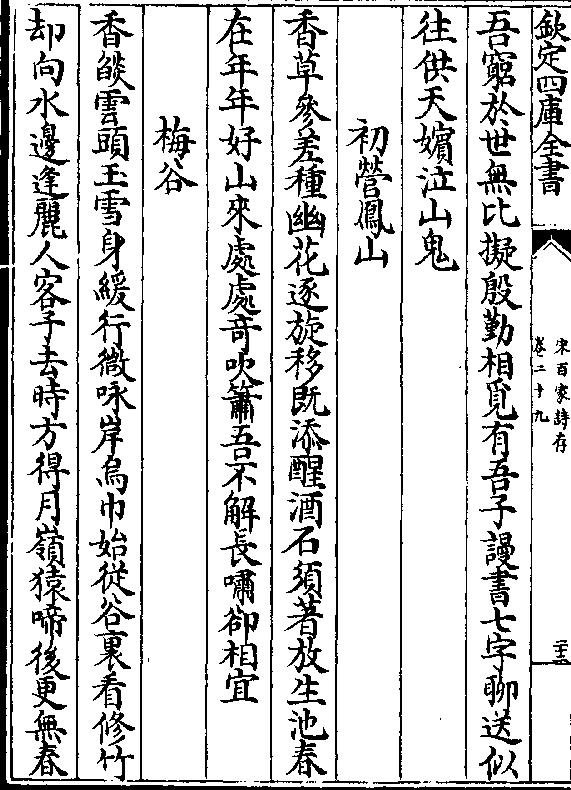 欽定四庫全書
宋百家詩存
卷二十九
二十三
吾窮於世無比擬殷勤相覓有吾子謾書七字聊送似
往供天嬪泣山鬼
初營鳳山
香草參差種幽花逐旋移既添醒酒石須著放生池春
在年年好山來處處竒吹簫吾不解長嘯卻相宜
梅谷
香燄雲頭玉雪身緩行微咏岸烏巾始從谷裏看修竹
却向水邊逢麗人客子去時方得月嶺猿啼後更無春